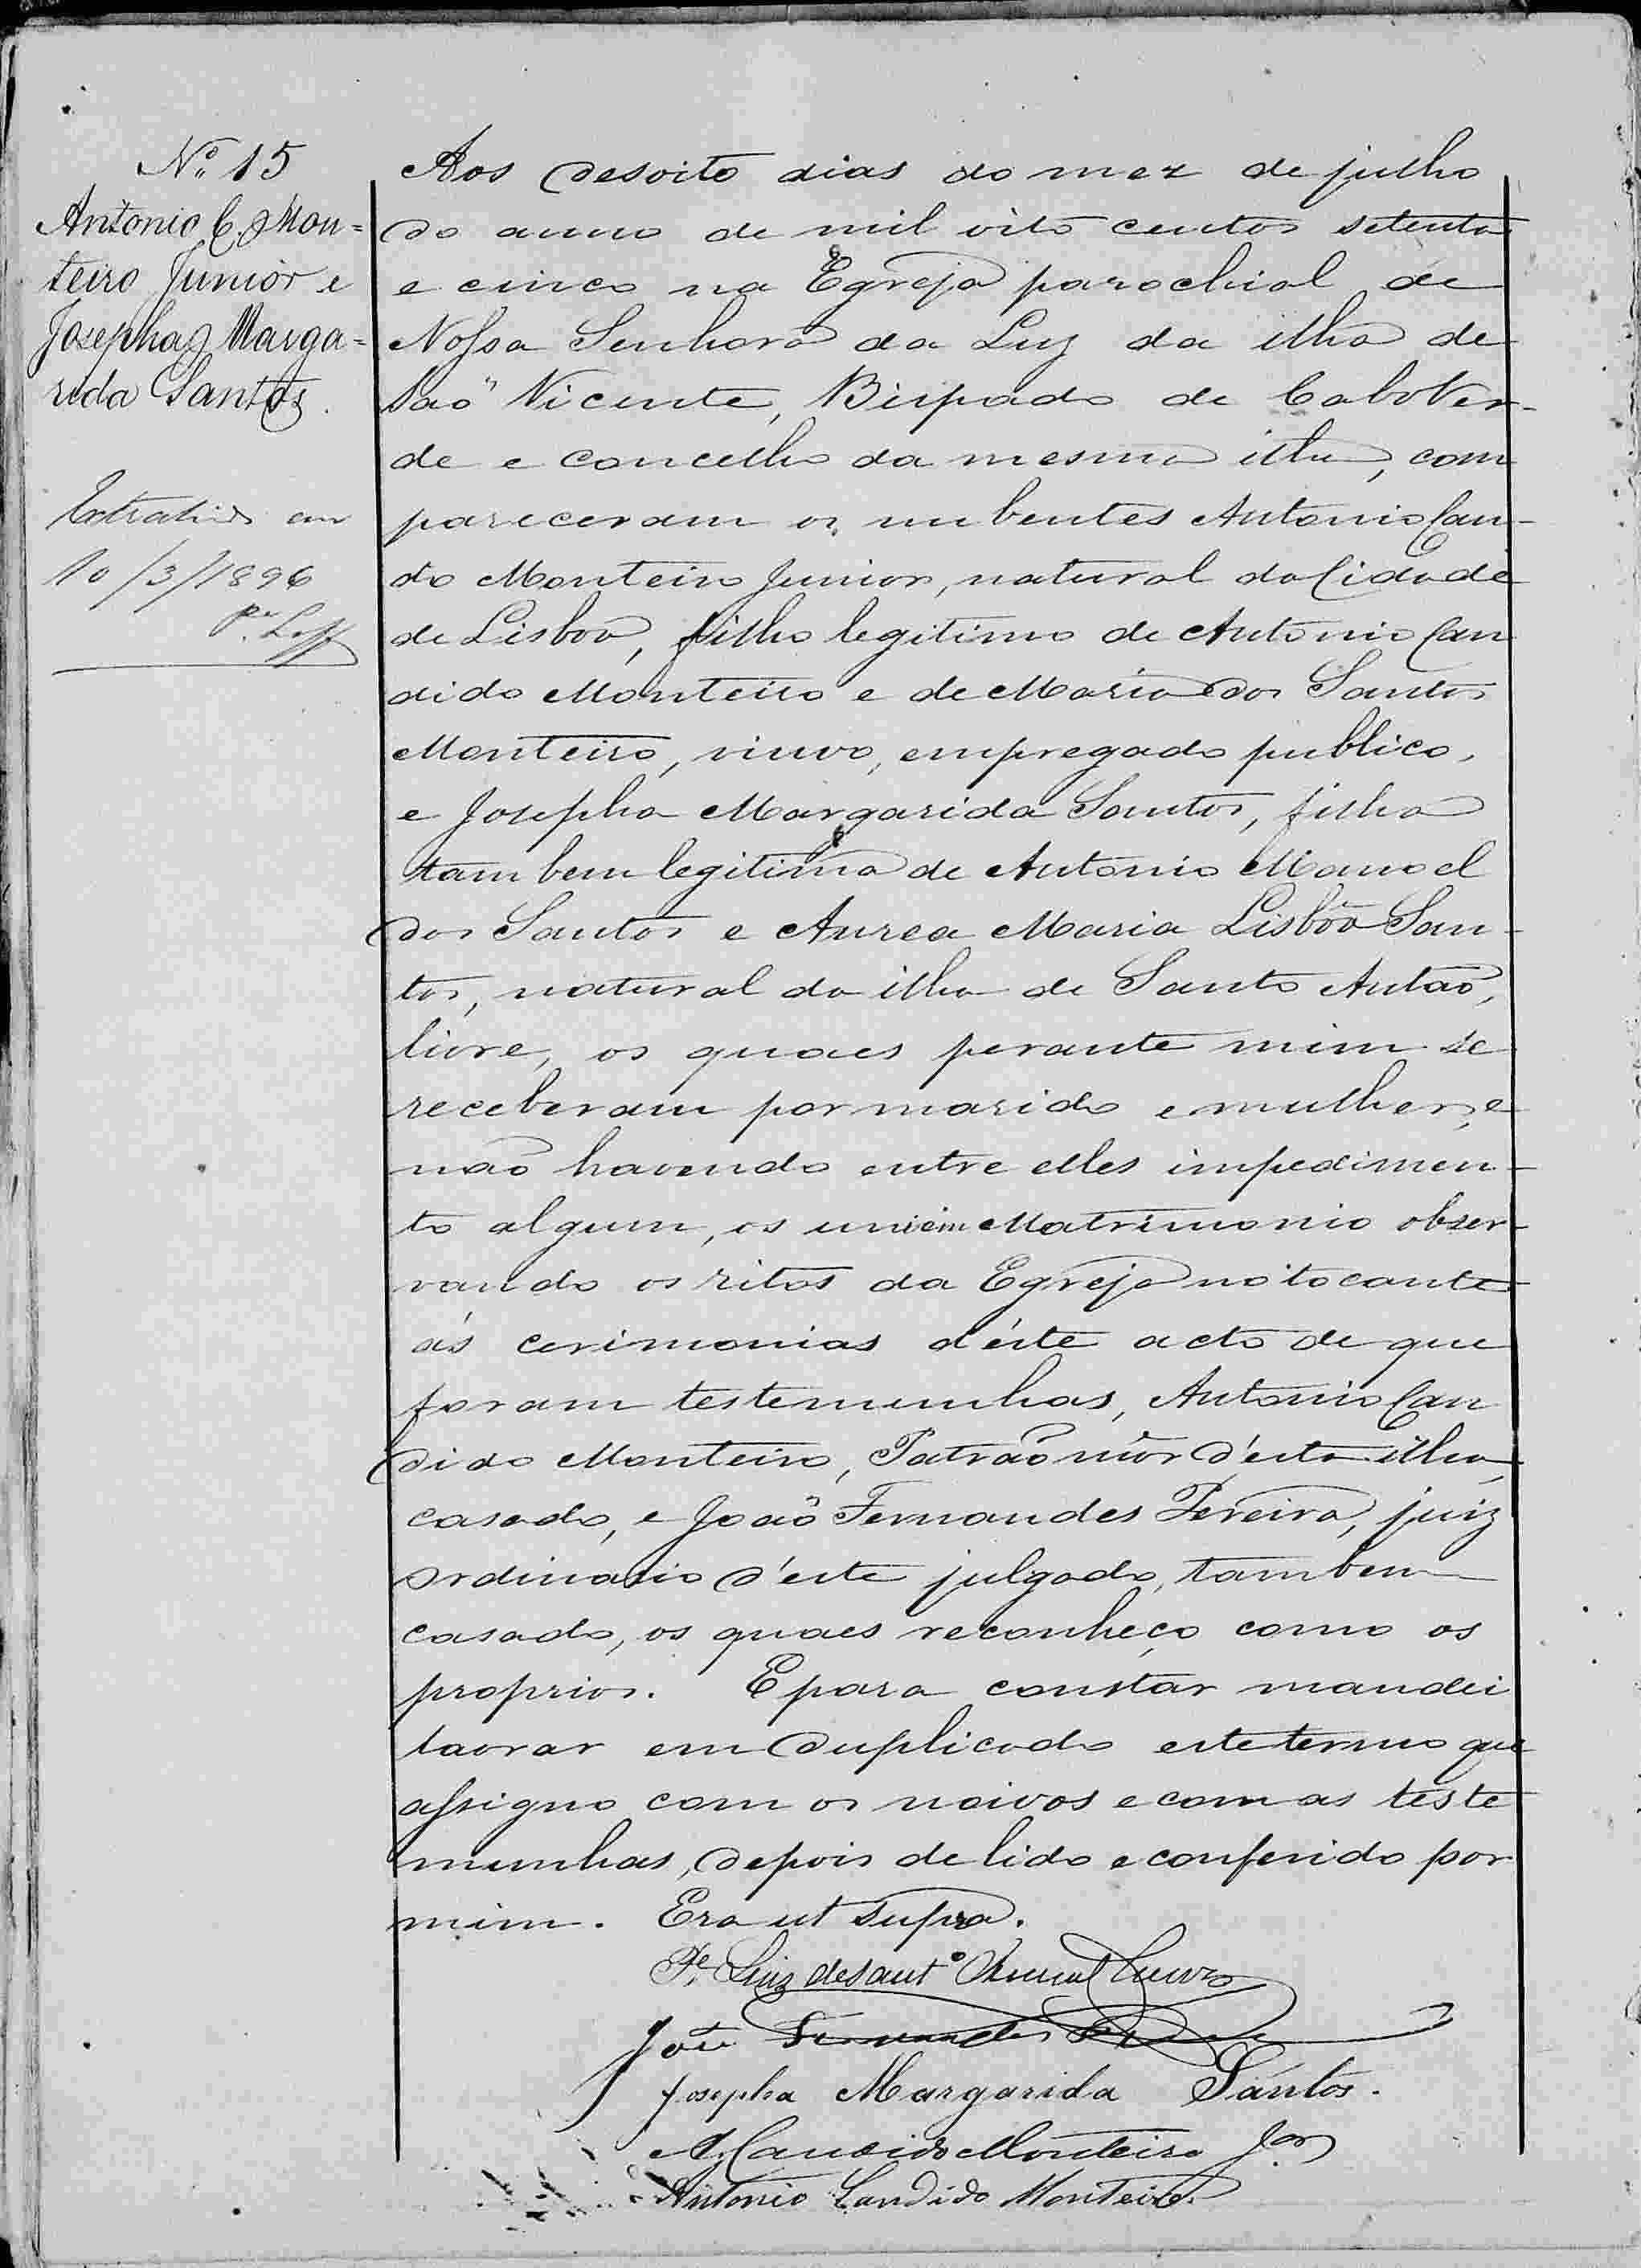 Nº 15
Antonio C. Mon=
teiro Junior e
Josepha Marga=
rida Santos.
Extrahido em
10/3/1896
Pe.
Aos desoito dias do mez de julho
do anno de mil oito centos setenta
e cinco na Egreja parochial de
Nossa Senhora da Luz da ilha de
São Vicente, Bispado de Cabo Ver-
de e concelho da mesma ilha, com
pareceram os nubentes Antonio Can-
do Monteiro Junior, natural da Cidade
de Lisboa, filho legitimo de Antonio Can
dido Monteiro e de Maria dos Santos
Monteiro, viuvo, empregado publico,
e Josepha Margarida Santos, filha
tam bem legitima de Antonio Manoel
dos Santos e Aurea Maria Lisbôa San-
tos, natural da ilha de Santo Antão,
livre, os quaes perante mim se
receberam por marido e mulher, e
não havendo entre elles impedimen-
to algum, os uni em Matrimonio obser-
vando os ritos da Egreja no tocante
ás cerimonias d'éste acto de que
foram testemunhas, Antonio Can
dido Monteiro, Patrão mór d'esta ilha,
casado, e João Fernandes Pereira, juiz
ordinario d'este julgado, tambem
casado, os quaes reconheço como os
proprios. E para constar mandei
lavrar em duplicado este termo que
assigno com os noivos e com as teste
munhas, depois de lido e conferido por
mim. Era ut supra.
Pe. Luiz
João Fernandes
Josepha Margarida Santos.
A. Candido Monteiro Jor
Antonio Candido Monteiro.